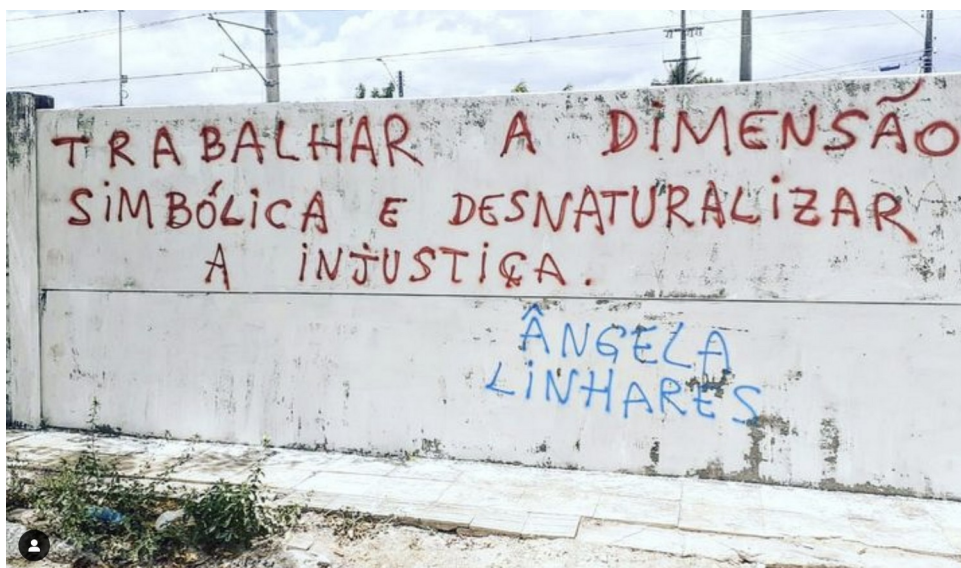 TRABALHAR A DIMENSÃO
SIMBÓLICA E DESNATURALIZAR
A INJUSTIÇA.
ÂNGELA
LINHARES